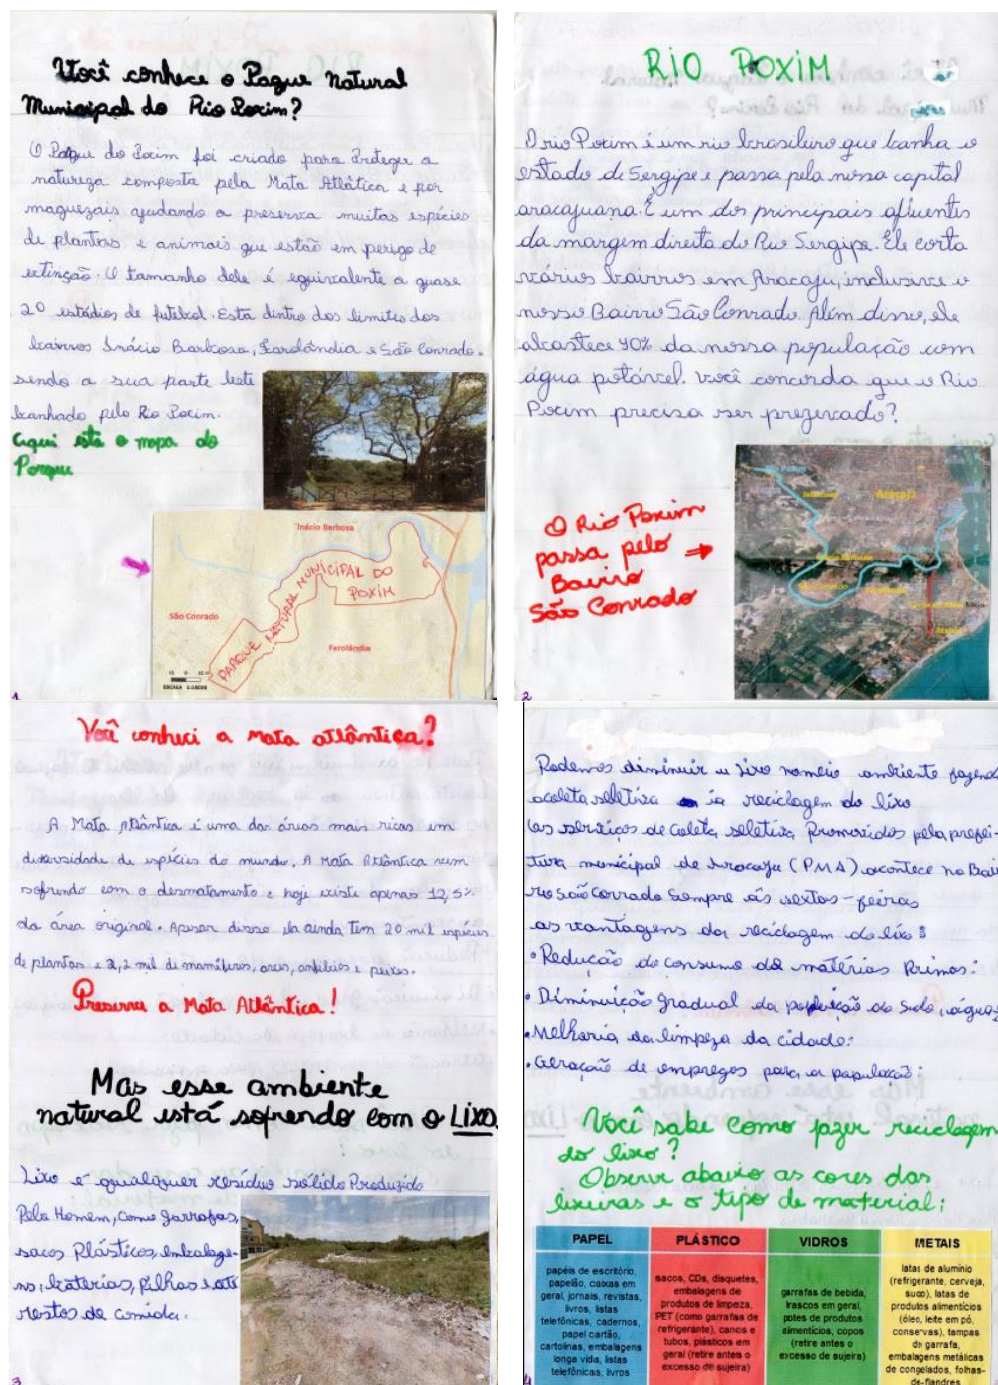 Você conhece o Pague Natural
Municipal do Rio Poxim?
O Paque do Poxim foi criado para Proteger a
natureza composta pela Mata Atlâtica e por
maguezais ajudando a preserva muitas espécies
de plantas e animais que estão em perigo de
extinção. O tamanho dele é equivalente a quase
20 estádios de futebol. Esta dintro dos limites dos
bairros Inácio Barbosa, Farolândia e São Conrado.
sendo a sua parte leste
banhado pelo Rio Poxim.
Aqui está o mapa do
Parque
Inácio Barbosa
PARQUE NATURAL MUNICIPAL DO
POXIM
São Conrado
Farolândia
1
RIO POXIM
O rio Poxim é um rio brasileiro que banha o
estado de Sergipe e passa pela nossa capital
aracajuana. É um dos principais afluentes
da margem direita do Rio Sergipe. Ele corta
vários bairros em Aracaju, inclusive o
nosso Bairro São Conrado. Além disso, ele
abastece 40% da nossa população com
água potável. Você concorda que o Rio
Poxim precisa ser prezervado?
O Rio Poxim
passa pelo
Bairro
São Conrado
Rio Poxim
Aracaju
São Conrado
2
Você conheci a mata atlântica?
A Mata Atlântica é uma das áreas mais ricas em
diversidade de espécies do mundo. A Mata Atlântica vem
sofrendo com o desmatamento e hoje existe apenas 12,5%
da área original. Apesar disso ela ainda tem 20 mil espécies
de plantas e 2,2 mil de mamíferos, aves, anfíbios e peixes.
Preserva a Mata Atlântica!
Mas esse ambiente
natural está sofrendo com o LIXO.
Lixo é qualquer resíduo sólido Produzido
Pelo Homem, Como garrafas,
sacos Plásticos, embalage-
ns, baterias, Pilhas e até
restos de comida.
3
Podemos diminuir u lixo nomeio ambiente fazend
acoleta seletiva ia reciclagem do lixo
os serviços de Coleta seletiva Promovidos pela prefei-
tura municipal de Aracaju (PMA) acontece no Bair
rio São Conrado Sempre ás sextas-feiras
as vantagens da reciclagem do lixo:
• Redução do consumo de matérias Primas:
• Diminuição gradual da poluição do Solo, água,
• Melhoria da limpeza da cidade:
• Geração de empregos para a população:
Você sabe como fazer reciclagem
do lixo?
Observe abaixo as cores das
lixeiras e o tipo de material:
PAPEL
papéis de escritório,
papelão, caixas em
geral, jornais, revistas,
livros, listas
telefônicas, cadernos,
papel cartão,
cartolinas, embalagens
longa vida, listas
telefônicas, livros
PLÁSTICO
sacos, CDs, disquetes,
embalagens de
produtos de limpeza,
PET (como garrafas de
refrigerante), canos e
tubos, plásticos em
geral (retire antes o
excesso de sujeira)
VIDROS
garrafas de bebida,
frascos em geral,
potes de produtos
alimentícios, copos
(retire antes o
excesso de sujeira)
METAIS
latas de alumínio
(refrigerante, cerveja,
suco), latas de
produtos alimentícios
(óleo, leite em pó,
conservas), tampas
de garrafa,
embalagens metálicas
de congelados, folhas-
de-flandres
4